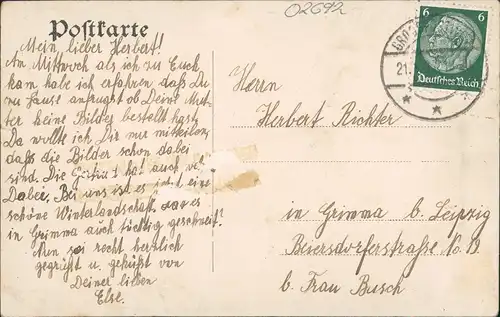 02692
Postkarte
Mein lieber Herbert!
Am Mittwoch als ich zu Euch
kam habe ich erfahren daß Du
zu Hause anfragst ob Deine Mut-
ter keine Bilder bestellt hast
Da wollte ich Dir nur mitteilen,
daß die Bilder schon dabei
sind. Die hat auch viel
Dabei. Bei uns ist es jetzt eine
schöne Winterlandschaft. es
in Grimma auch tüchtig geschneit?
Nun sei recht herzlich
gegrüßt u. geküßt von
Deiner lieben
Else.
6 6
Deutsches Reich
21.
Herrn
Herbert Richter
in Grimma b. Leipzig
Beiersdorferstraße No. 19
b. Frau Busch